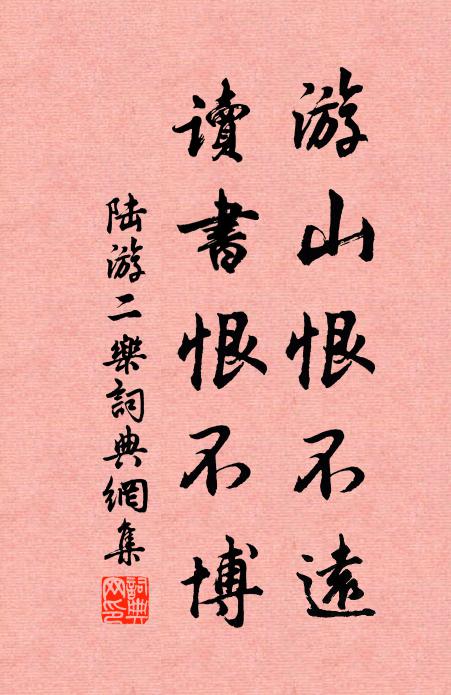 游山恨不遠
讀書恨不博
陸游二樂詞典網集
詞典
网印